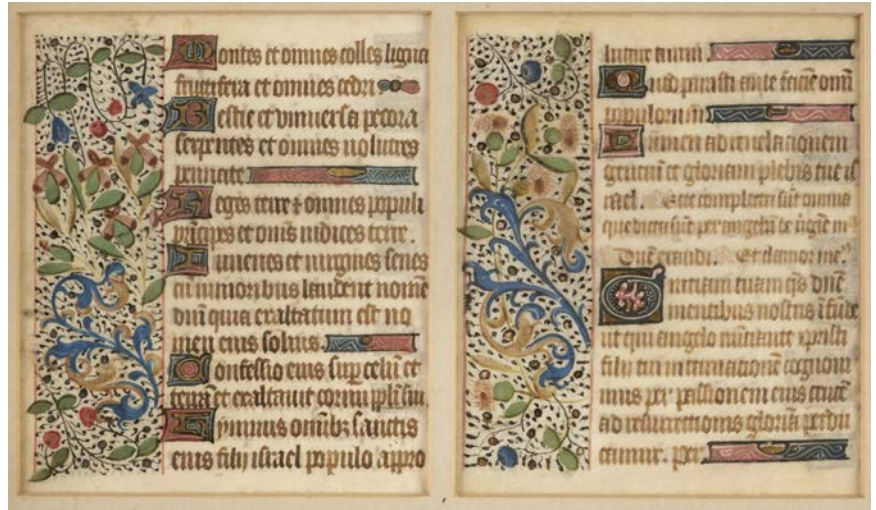 Montes et omnes colles ligna
fructifera et omnes cedri
Bestie et universa pecora
serpentes et omnes volucres
pennate
Reges terre et omnes populi
principes et omīs iudices terre.
Iuvenes et virgines senes
cū iunioribus laudent nomē
dnī quia exaltatum est no
men eius solius.
Confessio eius sup celū et
terrā et exaltavit cornu ipli sui.
Hymnus omībꝫ sanctis
eius filiis israel populo appro
lutare tuum
Quod parasti ante faciē omī
populorum
Lumen ad revelationem
gentiū et gloriam plebis tue is
rael. complete sūt omnia
que dicta sūt per angelū de virgīe m
Dñe exaudi. Et clamor me.
Gratiam tuam qs dñe
mentibus nostris īfūde
ut qui angelo nūtiante xpisti
filii tui incarnationē cognovi
mus per passionem eius et crucē
ad resurrectionis gloriā perdu
camur. Per.